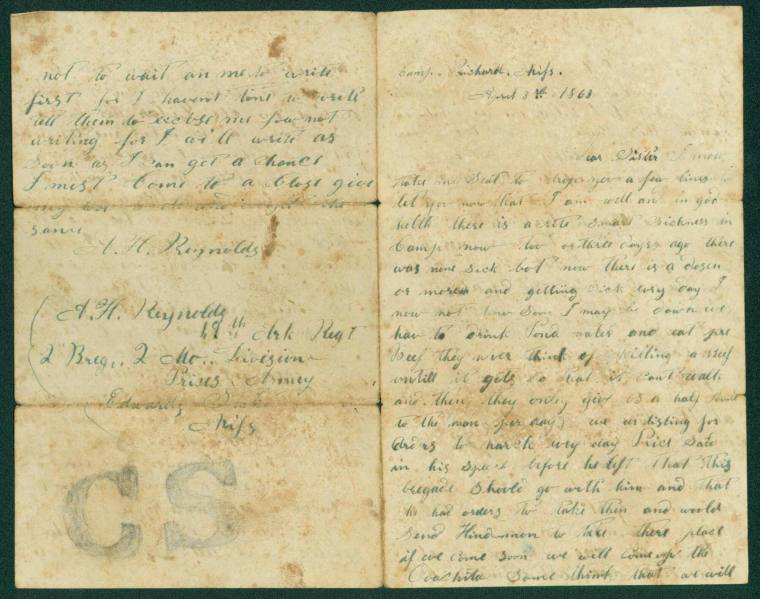 not to wait on me to write
first for I havent time to write
tell them to excuse me for not
writing for I will write as
soon as I can get a chance
I must Come to a Close give
my the
same
A. H. Reynolds
A. H. Reynolds
19th Ark Regt
2 Breg., 2 Mo.. Division
Prises Armey
Edwards
Miss
CS
Camp. Richard. Miss.
April 3rd 1863
Dear Sister I now
take my Seat to drop you a few lines to
let you now that I am well an in god
helth there is a rite Smart Sickness in
Camp now two or three days ago there
was none Sick but now there is a dosen
or more and getting Sick evry day I
now not how Soon I may be down we
hav to drink Pond water and eat
Beef they never think of Killing a Beef
untill it gets So that it cant walk
and then they only giv us a half Pound
to the man (per day) we ar listing for
Orders to march evry day Price Said
in his Speach before he left that this
bregade Should go with him and that
he had orders to take them and would
Send Hindman to take there place
if we come Soon we will come up the
Oachita Some think that we will